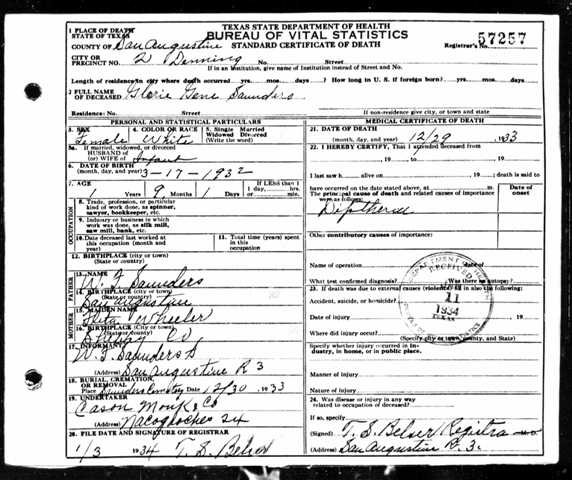 TEXAS STATE DEPARTMENT OF HEALTH
BUREAU OF VITAL STATISTICS
STANDARD CERTIFICATE OF DEATH
1 PLACE OF DEATH
STATE OF TEXAS
COUNTY OF San Augustine
Registrar's No. 57257
CITY OR
PRECINCT NO. 2 Denning No. Street
If in an institution, give name of institution instead of Street and No.
Length of residence in city where death occurred yrs. mos. days. How long in U. S. if foreign born? yrs. mos. days
2 FULL NAME
OF DECEASED Glorie Gene Saunders
Residence: No. Street
If non-residence give city, or town and state
PERSONAL AND STATISTICAL PARTICULARS
3. SEX
Female
4. COLOR OR RACE
White
5. Single Married
Widowed Divorced
(Write the word)
5a. If married, widowed, or divorced
HUSBAND OF
(or) WIFE OF Infant
6. DATE OF BIRTH
(month, day, and year) 3-17-1932
7. AGE
1 Years 9 Months 1 Days
If LESS than 1
day, hrs.
or min.
OCCUPATION
8. Trade, profession, or particular
kind of work done, as spinner,
sawyer, bookkeeper, etc.
9. Industry or business in which
work was done, as silk mill,
saw mill, bank, etc.
10. Date deceased last worked at
this occupation (month and
year)
11. Total time (years) spent
in this occupation
12. BIRTHPLACE (City or town)
(State or county)
FATHER
13. NAME
W. F. Saunders
14. BIRTHPLACE (City or town)
(State or county)
San Augustine
MOTHER
15. MAIDEN NAME
Wheeler
16. BIRTHPLACE (City or town)
(State or county)
Shelby Co
17. INFORMANT
W. F. Saunders
(Address) San Augustine R 3
18. BURIAL, CREMATION,
OR REMOVAL
Place Saunders Cemetry Date 12/30 1933
19. UNDERTAKER
Cason Monk & Co
(Address) Nacogdoches
20. FILE DATE AND SIGNATURE OF REGISTRAR
1/3 1934 T. S. Belser
MEDICAL CERTIFICATE OF DEATH
21. DATE OF DEATH
(month, day, and year) 12/29 1933
22. I HEREBY CERTIFY, That I attended deceased from
19 to 19
I last saw h alive on 19 death is said to
have occurred on the date stated above, at m.
The principal cause of death and related causes of importance
were as follows:
Date of
onset
Diptheria
Other contributory causes of importance:
Name of operation Date of
What test confirmed diagnosis? Was there an autopsy?
23. If death was due to external causes (violence) fill in also the following:
Accident, suicide, or homicide?
Date of injury 19
Where did injury occur?
(Specify city or town, county, and State)
Specify whether injury occurred in Industry, in home, or in public place.
Manner of injury
Nature of injury
24. Was disease or injury in any way
related to occupation of deceased?
If so, specify
(Signed) T. S. Belser Registra
San Augustine R. 3.
DEPARTMENT OF HEALTH
RECEIVED
11
1934
TEXAS